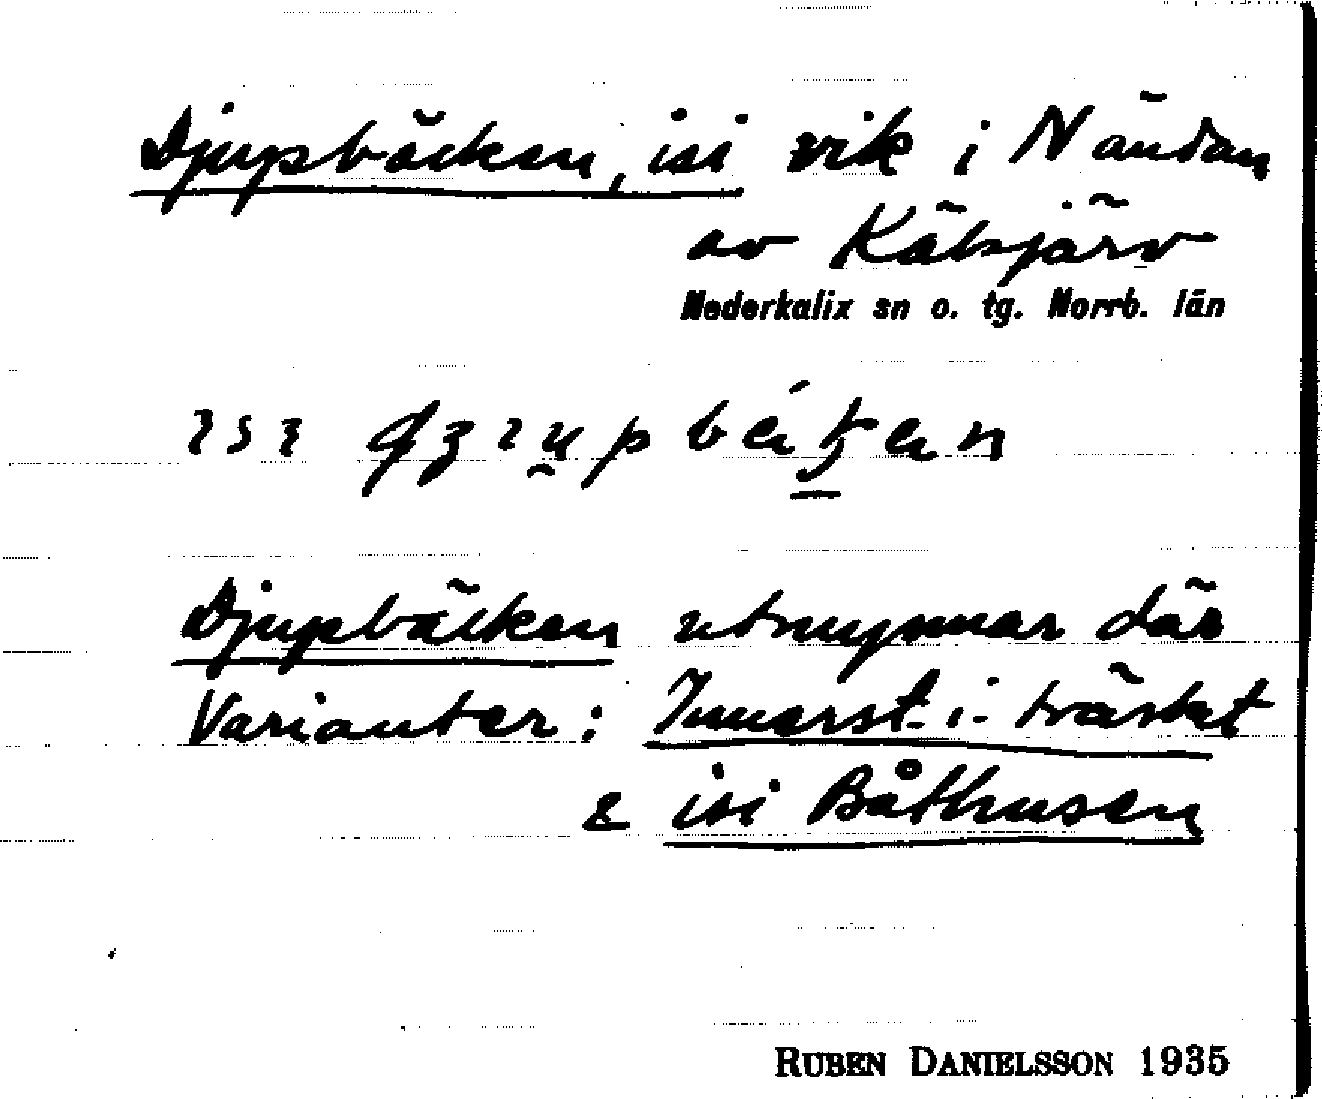 Djupbäcken, isi vik i Nändan
av Kälsjärv
Nederkalix sn o. tg. Norrb. län
Djupbäcken utmynnar där
Varianter: Innerst-i-träsket
& isi Båthusen
RUBEN DANIELSSON 1935